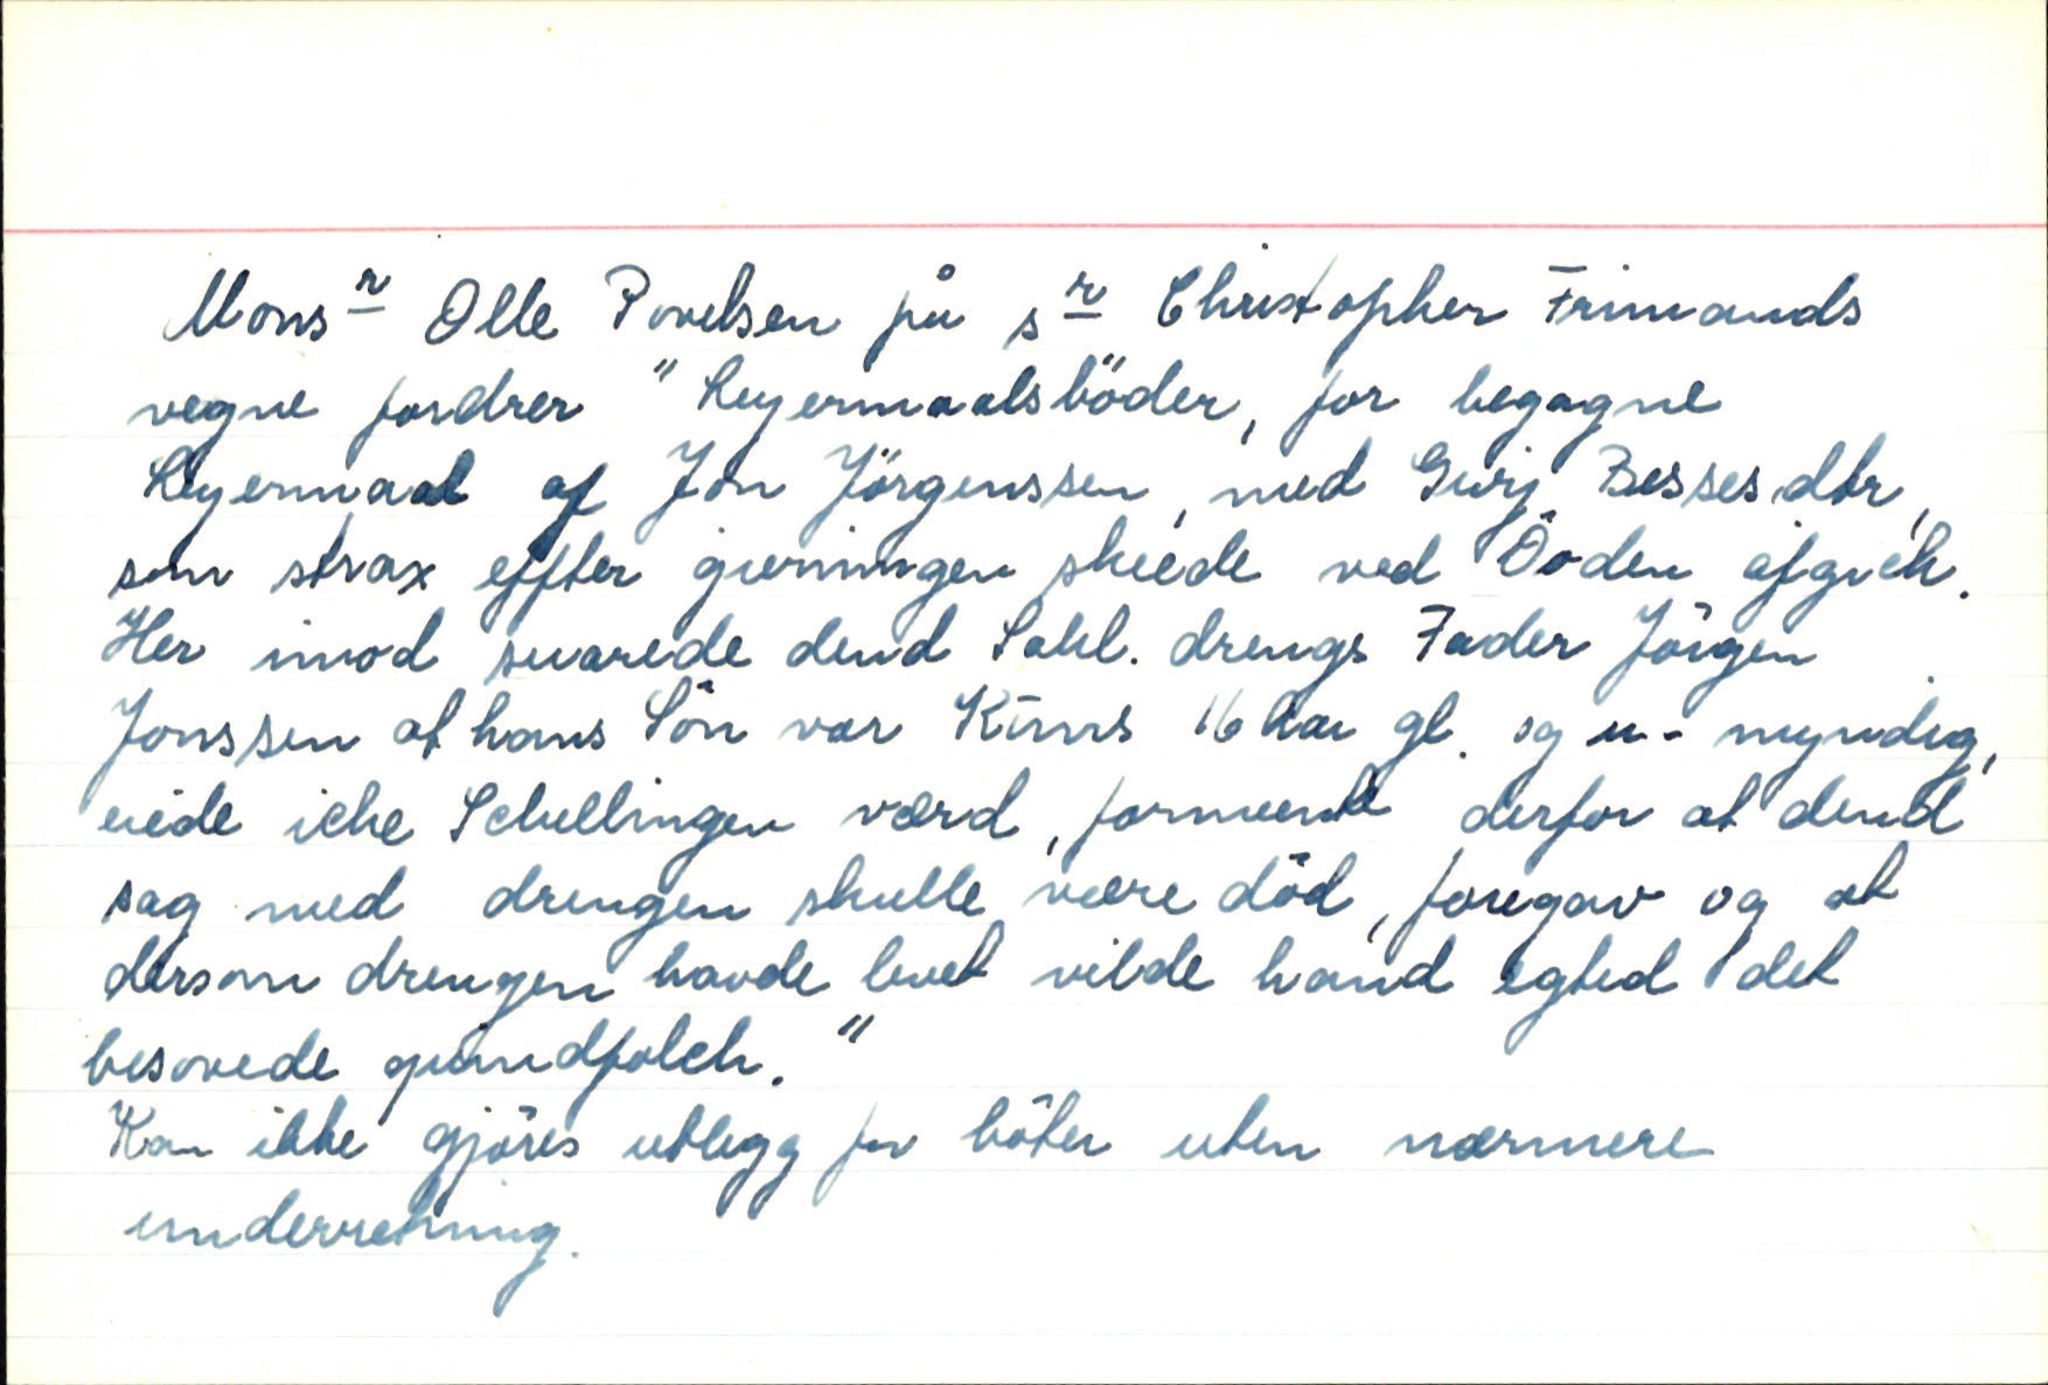 Monsr Olle Povelsen på sr Christopher Frimands
vegne fordrer "Leyermaalsböder, for begagne
Leyermaal af Jon Jörgenssen, med Gurj Bessesdtr,
som strax effter gierningen skeede ved Döden afgick.
Her imod svarede dend Sahl. drengs Fader Jörgen
Jonssen at hans Sön var Kuns 16 aar gl. og u-myndig,
eiede icke Schellingen værd, formeente derfor at dend
sag med drengen skulle være död, foregav og at
dersom drengen havde levet vilde hand egted det
besovede quindfolch."
Kan ikke gjöres utlegg for böter uten nærmere
underretning.